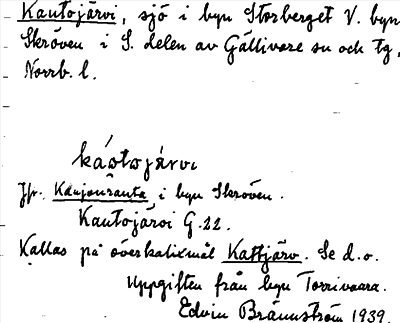 Kautojärvi, sjö i byn Storberget V. byn
Skröven i S. delen av Gällivare sn och tg,
Norrb. l.
káotojärvi
Jfr. Kaujouranta, i byn Skröven.
Kautojärvi G.22.
Kallas på överkalixmål Kattjärv. Se d.o.
Uppgiften från byn Torrivaara.
Edvin Brännström 1939.